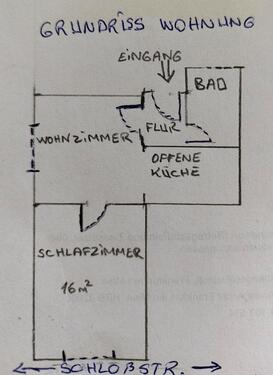 GRUNDRISS WOHNUNG
EINGANG
BAD
WOHNZIMMER
FLUR
OFFENE
KÜCHE
SCHLAFZIMMER
16m²
SCHLOßSTR.